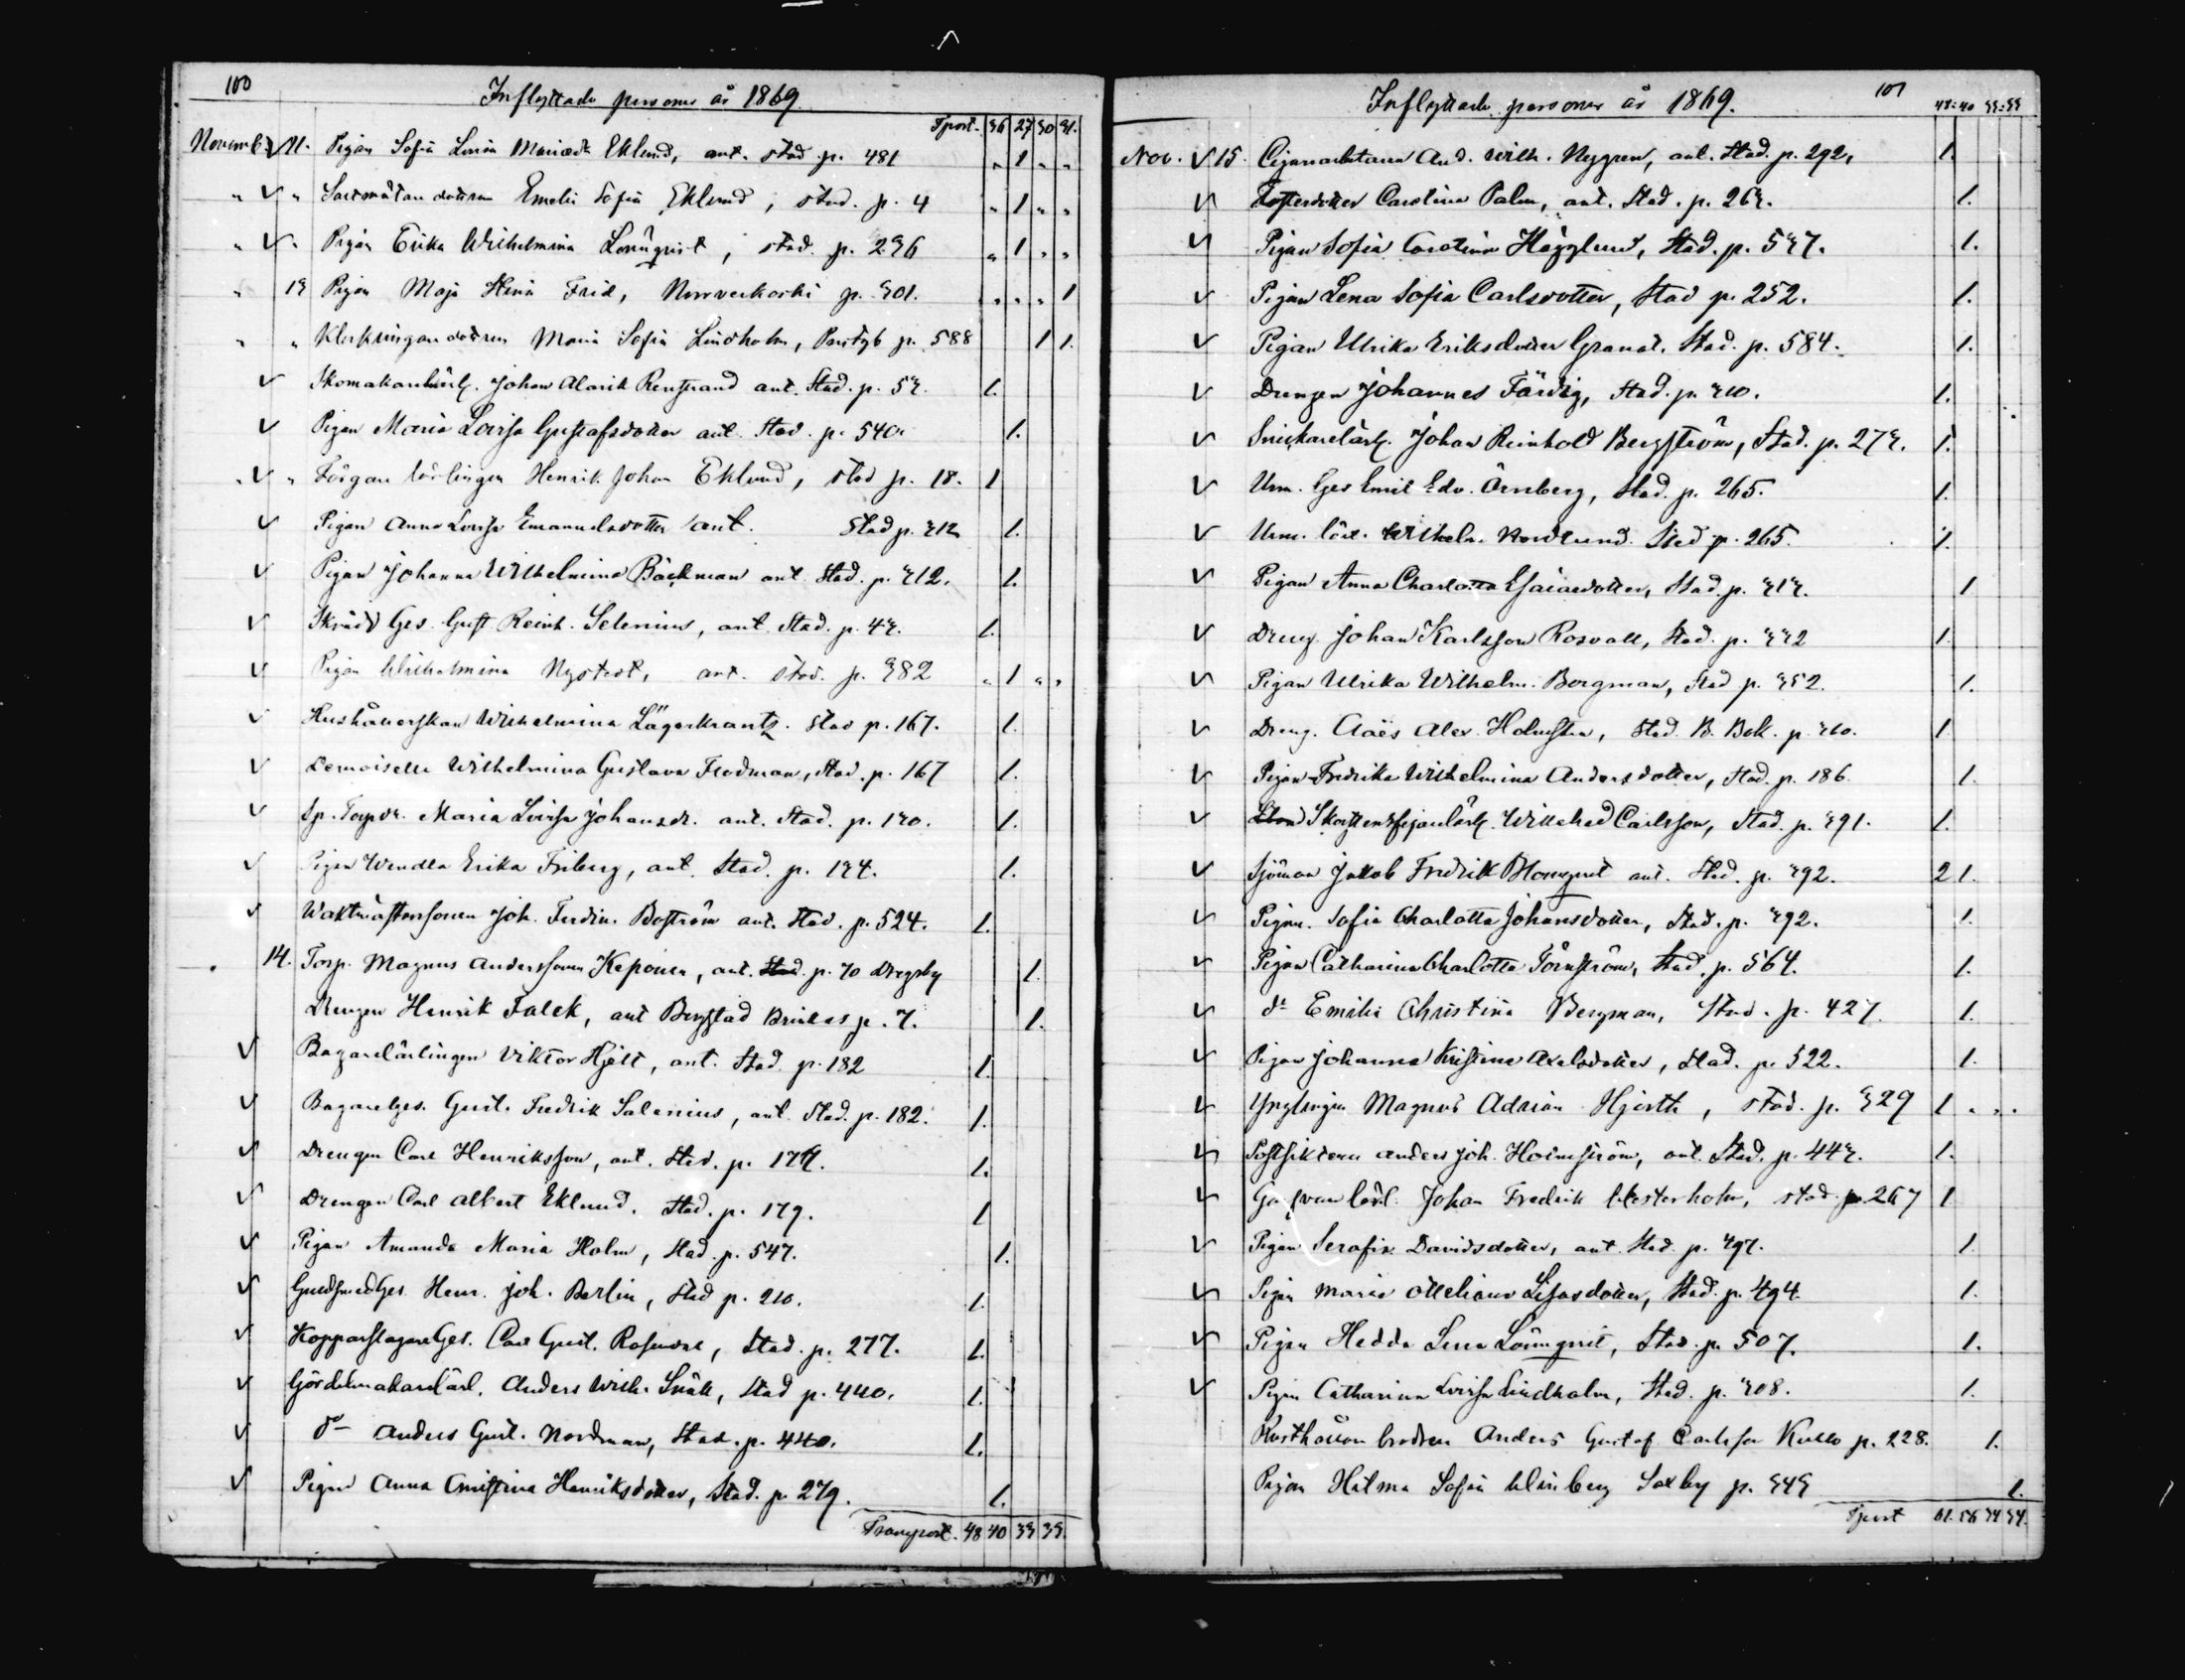 100
Inflyttade personer år 1869
Tport. 36 27 30 31.
Novemb. 11. Pigan Sofia Lovisa Mariædr Eklund, ant. stad. p. 481 " 1 " "
" " dottren Emelie Sofia Eklund, stad. p. 4 " 1 " "
" " Pigan Erika Wilhelmina Lönnqvist, stad. p. 236 " 1 " "
" 13 Pigan Maja Stina Frid, p. 301. " " " 1
" " dottren Maria Sofia Lindholm, p. 588 1 1.
Skomakarelärl. Johan Alarik Renstrand ant. Stad. p. 53. 1.
Pigan Maria Lovisa Gustafsdotter ant. Stad. p. 540. 1.
" " Färgare lärlingen Henrik Johan Eklund, stad p. 18. 1
Pigan Anna Lovisa Emanuelsdotter ant. Stad p. 312 1.
Pigan Johanna Wilhelmina Bäckman ant. Stad. p. 312. 1.
Skrädd Ges. Gust. Reinh. Selenius, ant. Stad. p. 43. 1.
Pigan Wilhelmina Nystedt, ant. stad. p. 382 " 1 " "
Hushållerskan Wilhelmina Lägerkrantz. Stad p. 167. 1.
Demoiselle Wilhelmina Gustava Fredman, Stad. p. 167 1.
Sp. Torpdr. Maria Lovisa Johansdr. ant. Stad. p. 130. 1.
Pigan Wendla Erika Friberg, ant. Stad. p. 134. 1.
Waktmästersonen Joh. Ferdin. Boström ant. Stad. p. 524. 1.
14. Torp. Magnus Andersson Keponen, ant. Stad. p. 70 Dregsby 1.
Drengen Henrik Falck, ant Bergstad Brinkas p. 7. 1.
Bagarelärlingen Viktor Hjelt, ant. Stad. p. 182 1.
Bagareges. Gust. Fredrik Salenius, ant. Stad. p. 182. 1.
Drengen Carl Henriksson, ant. Stad. p. 179. 1.
Drengen Carl Albert Eklund. Stad. p. 179. 1
Pigan Amanda Maria Holm, Stad. p. 547. 1.
GuldsmedGes. Henr. Joh. Berlin, Stad p. 210. 1.
KopparslagareGes. Carl Gust. Stad. p. 277. 1.
Gördelmakarelärl. Anders Wilh. Snäll, Stad p. 440. 1.
do Anders Gust. Nordman, Stad. p. 440. 1.
Pigan Anna Christina Henriksdotter, Stad. p. 279. 1.
Transport. 48 40 33 33.
Inflyttade personer år 1869. 101
48:40 33:33
Nov. 15. Cigararbetaren And. Wilh. Nygren, ant. Stad. p. 292. 1.
Fosterdotter Carolina Palm, ant. Stad. p. 263. 1.
Pigan Sofia Carolina Hägglund, Stad. p. 537. 1.
Pigan Lena Sofia Carlsdotter, Stad p. 252. 1.
Pigan Ulrika Eriksdotter Granat. Stad. p. 584. 1.
Drengen Johannes Färdig, Stad. p. 310. 1.
Snickarelärl. Johan Reinhold Bergström, Stad. p. 273. 1.
Urm. Ges Emil Edv. Örnberg, Stad. p. 265. 1.
Urm. lärl. Wilhelm Nordlund. Stad p. 265. 1.
Pigan Anna Charlotta Esaiaedotter, Stad. p. 313. 1
Dreng. Johan Karlsson Rosvall, Stad. p. 332 1.
Pigan Ulrika Wilhelm. Bergman, Stad p. 352. 1.
Dreng. Claës Alex. Holmsten, Stad. B. Bok. p. 310. 1
Pigan Fredrika Wilhelmina Andersdotter, Stad. p. 186. 1.
Willehad Carlsson, Stad. p. 391. 1.
Sjöman Jakob Fredrik Blomqvist ant. Stad. p. 392. 2 1.
Pigan. Sofia Charlotta Johansdotter, Stad. p. 392. 1.
Pigan Catharina Charlotta Törnström, Stad. p. 564. 1.
do Emilie Christina Bergman, Stad. p. 427. 1.
Pigan Johanna Kristina Axelsdotter, Stad. p. 522. 1.
Ynglingen Magnus Adrian Hjorth, stad. p. 329 1 " " "
Anders Joh. Holmström, ant. Stad. p. 443. 1.
lärl. Johan Fredrik Westerholm, stad. p. 267 1
Pigan Serafin. Davidsdotter, ant. Stad. p. 397. 1.
Pigan Maria Ottiliana Lisasdotter, Stad. p. 494. 1.
Pigan Hedda Lena Lönnqvist, Stad. p. 507. 1.
Pigan Catharina Lovisa Lindholm, Stad. p. 308. 1.
Rusthållare brodren Anders Gustaf Carlsson Kullo p. 228. 1.
Pigan Hilma Sofia Winberg Saxby p. 343 1.
Tport 61. 56 34 34.